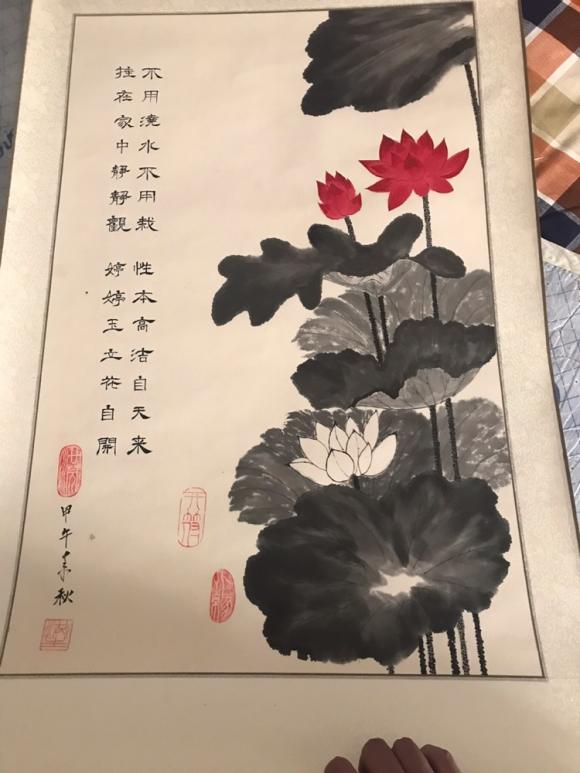 不用澆水不用栽 性本高洁自天来
挂在家中靜靜觀 婷婷玉立花自開
甲午素秋